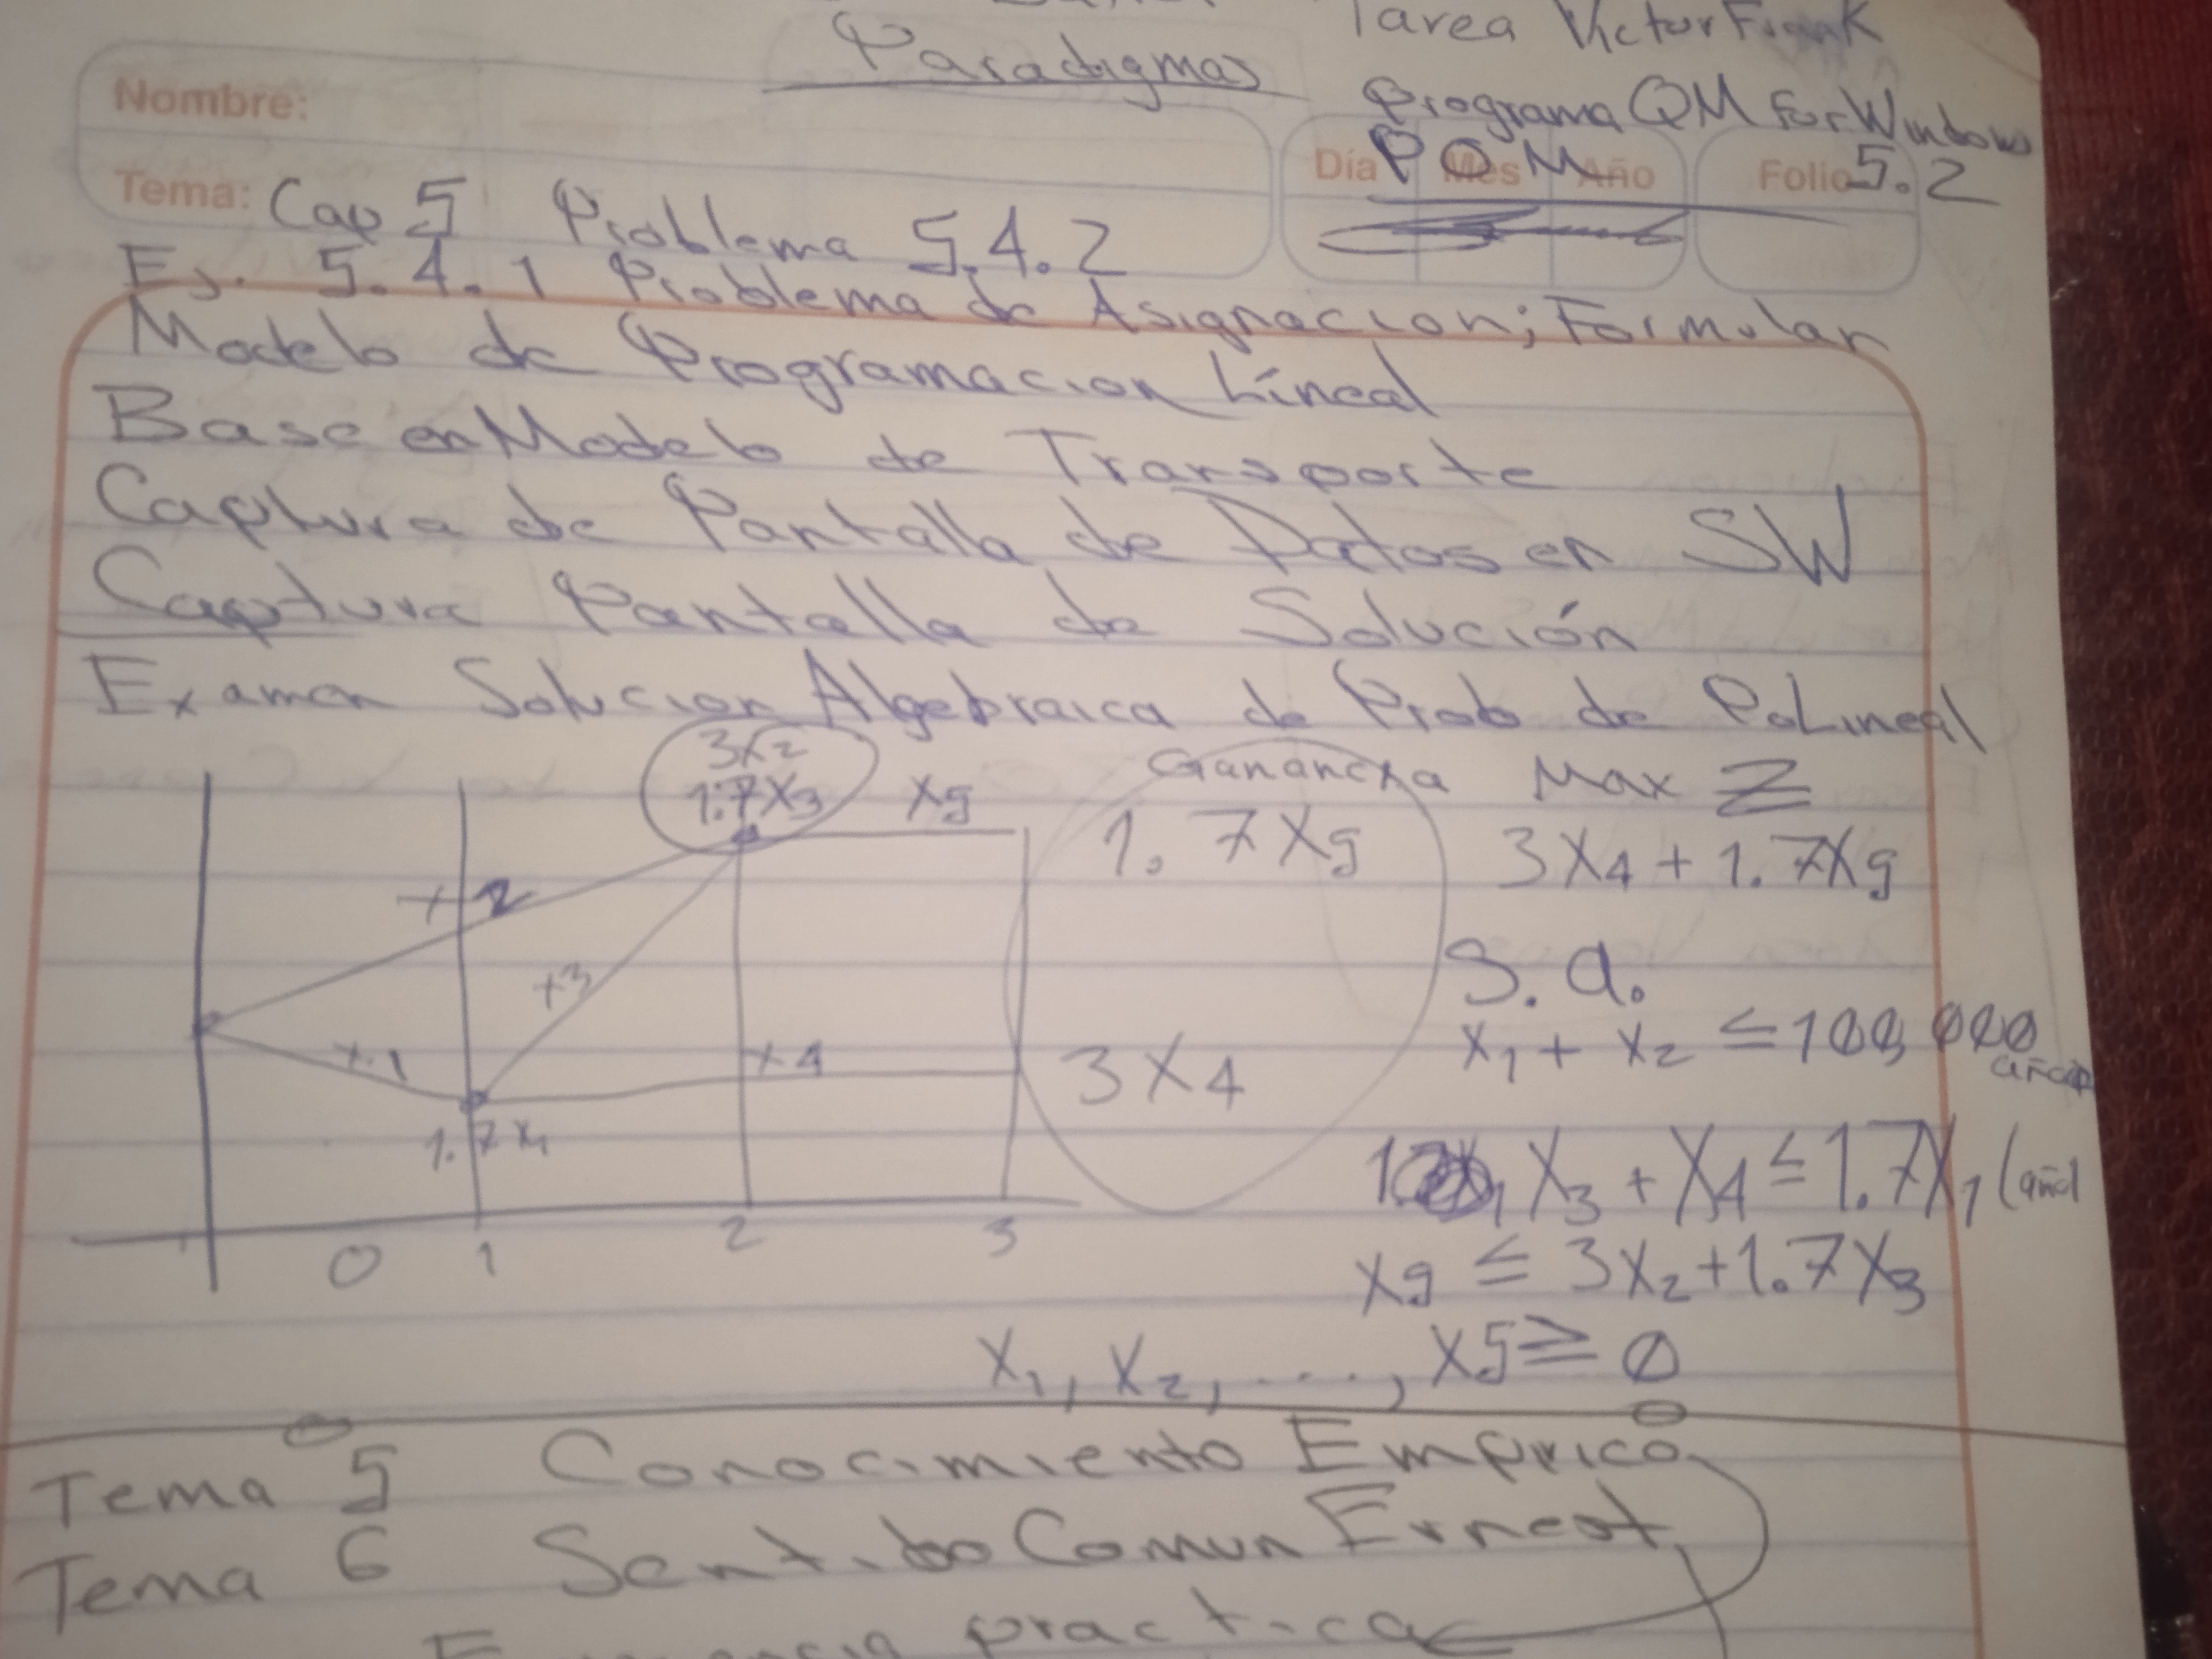 Paradigmas
Tarea Victor Frank
Programa QM For Windows
POM 5.2
Nombre:
Día Mes Año Folio
Tema: Cap 5 Problema 5.4.2
Ej. 5.4.1 Problema de Asignacion; Formular
Modelo de Programacion Líneal
Base en Modelo de Transporte
Captura de Pantalla de Datos en SW
Captura Pantalla de Solución
Examen Solucion Algebraica de Prob de PoLineal
3X2
1.7X3 X5
Ganancia Max Z
1.7X5 3X4 + 1.7X5
X2
X3
S.a.
X1 X4 3X4
X1 + X2 ≤ 100,000
1.7X1
X3 + X4 ≤ 1.7X1 (año1
X5 ≤ 3X2 + 1.7X3
0 1 2 3
X1, X2, ..., X5 ≥ 0
Tema 5 Conocimiento Emprico
Tema 6 Sentido Comun Ernest
practica